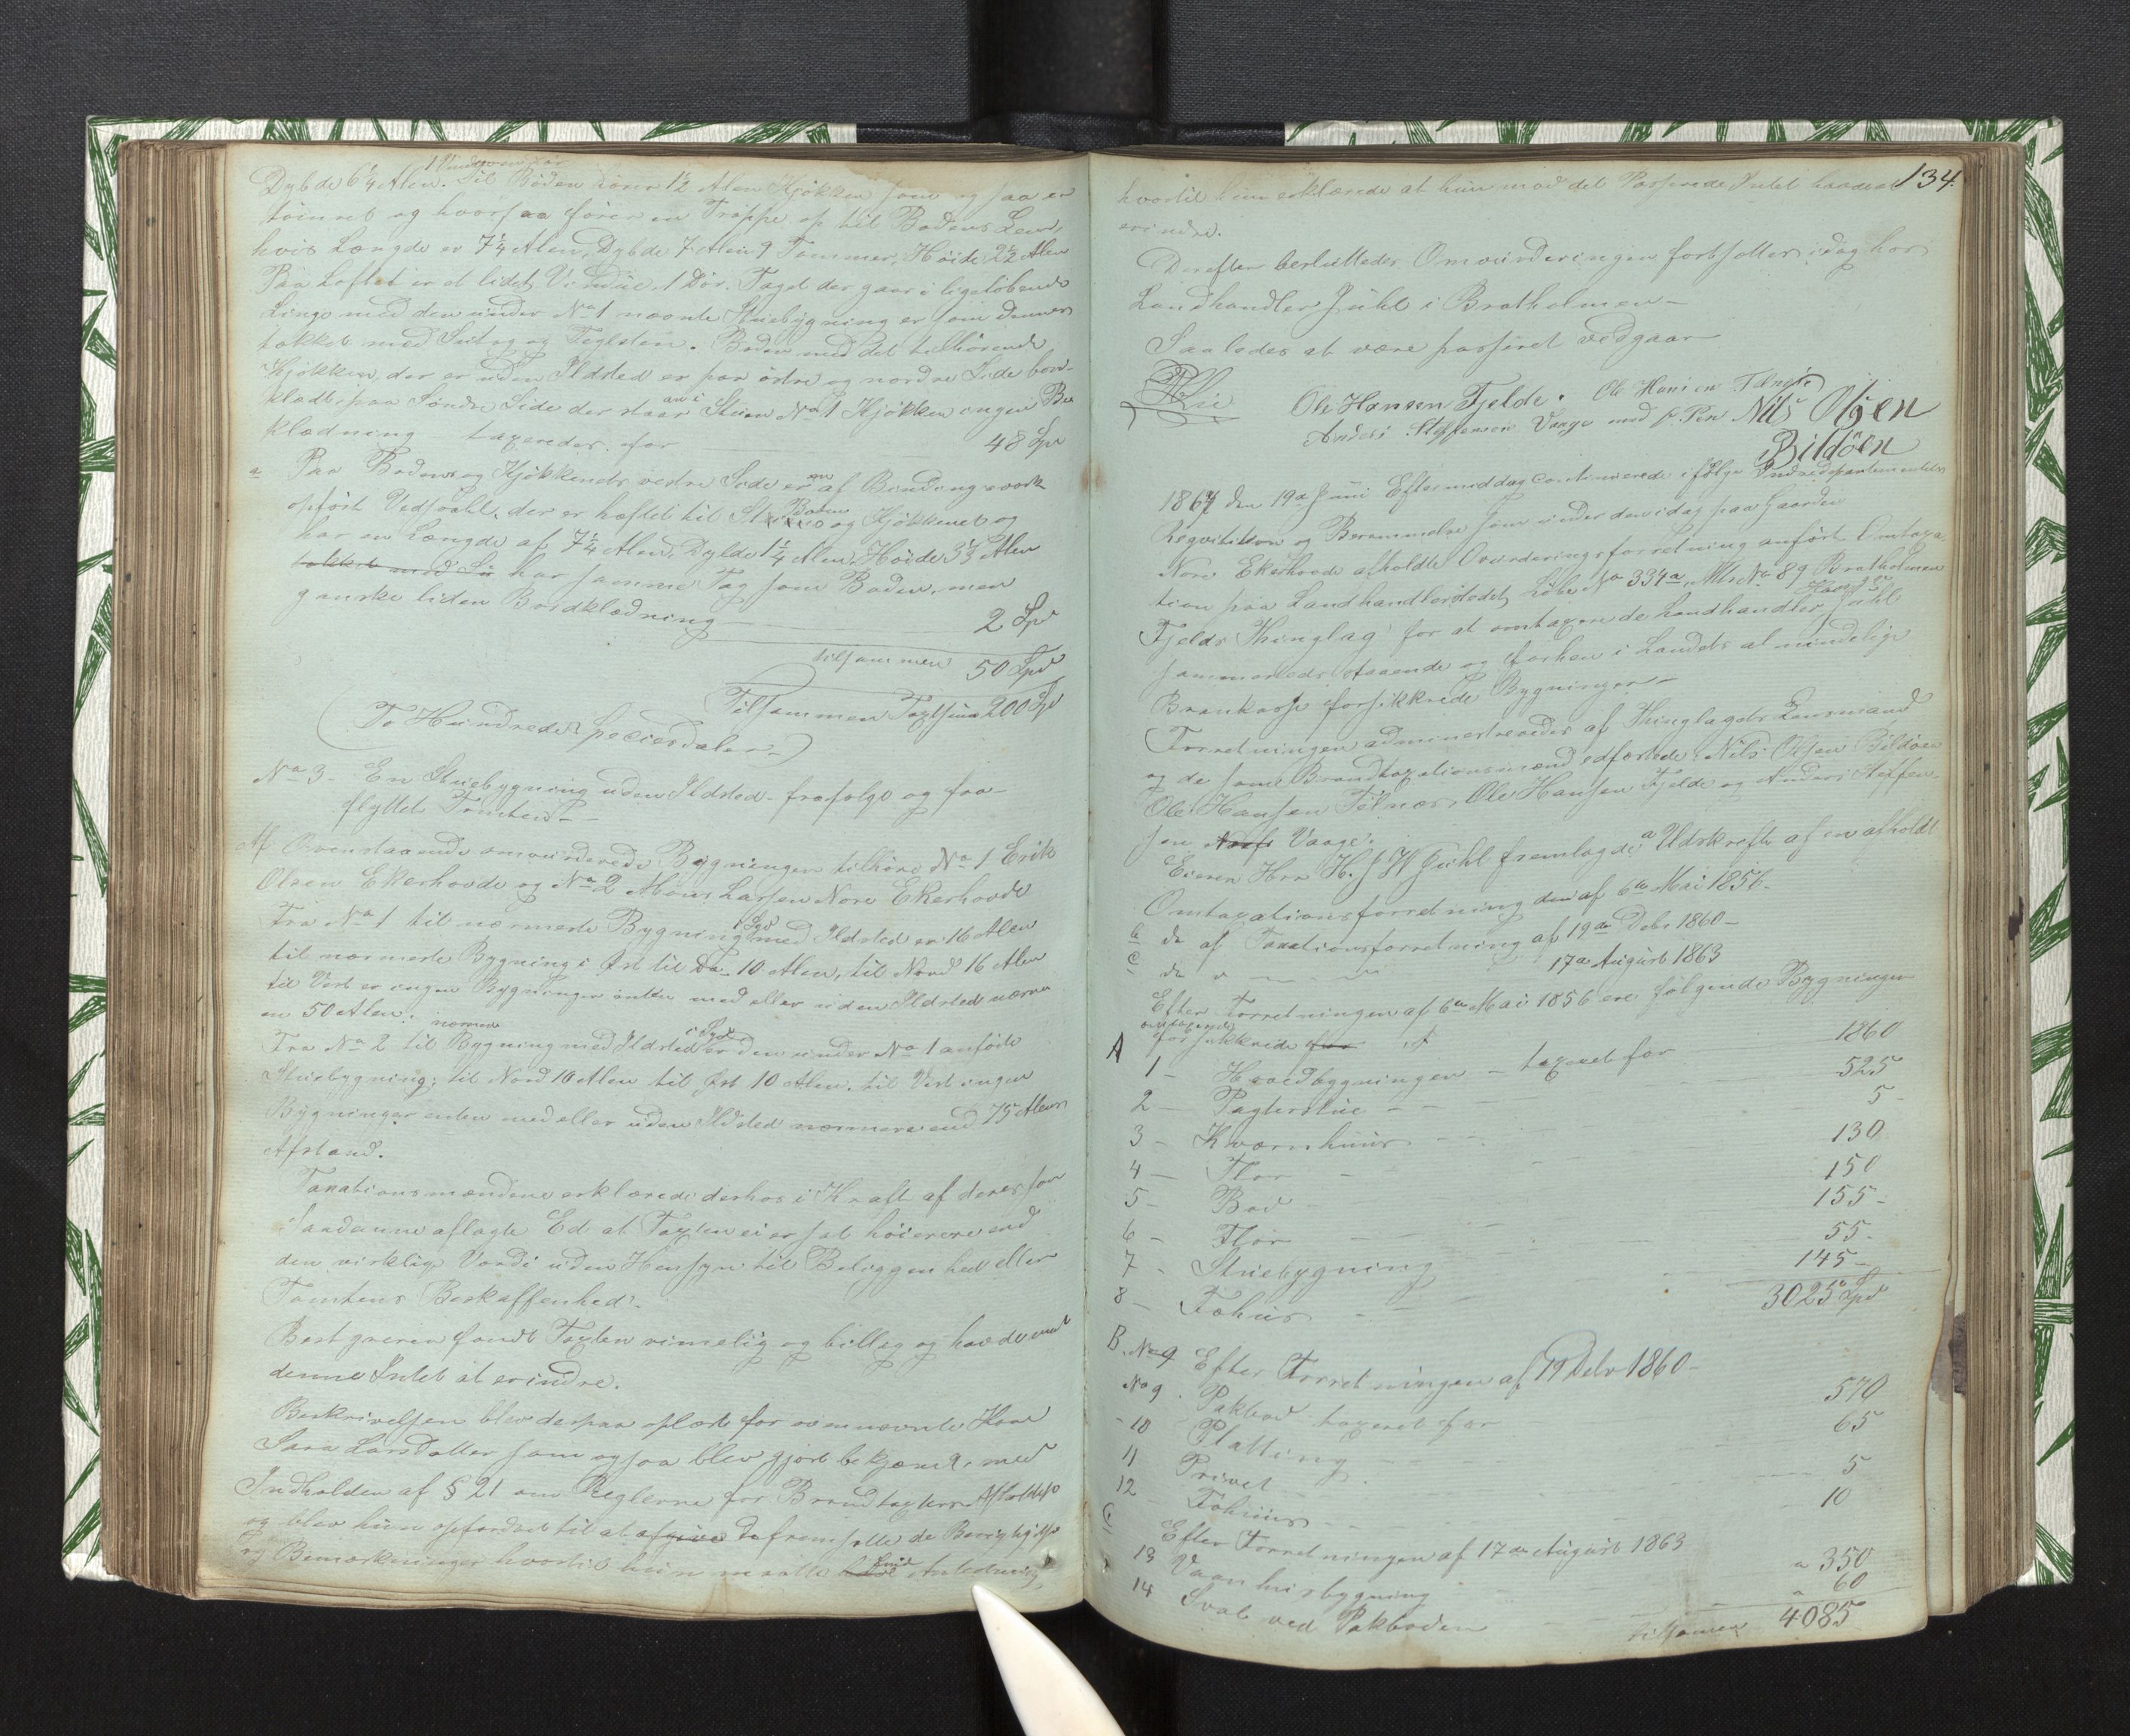 1 Vindu oven for
Dybde 6¼ Alen. Til Boden fører 1½ Alen Kjøkken som og saa er
tømret og hvorfra fører en Trappe op til Bodens Lem,
hvis Længde er 7¼ Alen, Dybde 7 Alen 9 Tommer, Høide 2½ Alen
Paa Loftet er et lidet Vindue, 1 Dør. Taget der gaar i ligeløbende
Linge med den under No 1 nævnte Stuebygning er som dennes
tækket med Sutag og Teglsten. Boden med det tilhørende
Kjøkken, der er uden Ildsted er paa østre og nordre Side bord-
klædt, paa Søndre Side der staar an i Stuen No 1 Kjøkken ingen Be
klædning taxeredes for 48 Spd
a Paa Bodens og Kjøkkenets vestre Side er en af Bindingsværk
opført Vedskaahl, der er hæftet til Boden og Kjøkkenet og
har en Længde af 7¼ Alen, Dybde 1¼ Alen, Høide 3⅓ Alen
tækket med Su har samme Tag som Boden, men
ganske liden Bordklædning 2 Spd
tilsammen 50 Spd
Tilsammen Taxtsum 200 Spd
(To Hundrede Speciesdaler)
No 3 - En Stuebygning uden Ildsted - frafolge og fra-
flyttet Tomten -
Af Ovenstaaende omvurderede Bygninger tilhøre No 1 Erik
Olsen Ekerhovde og No 2 Mons Larsen Nore Ekerhovde
Fra No 1 til nærmeste Bygning i Syd med Ildsted er 16 Alen
til nærmeste Bygning i Øst til Do 10 Alen, til Nord 16 Alen
til Vest er ingen Bygninger enten med eller uden Ildsted nærme
en 50 Alen.
Fra No 2 til nærmeste Bygning med Ildsted i Syd er den under No 1 anførte
Stuebygning; til Nord 10 Alen til Øst 10 Alen, til Vest ingen
Bygninger enten med eller uden Ildsted nærmere end 75 Alens
Afstand.
Taxationsmændene erklærede derhos i Kraft af deres for
saadanne aflagte Ed at Taxten ei er sat høiere end
den virkelige Værdi uden Hensyn til Beliggenhed eller
Tomtens Beskaffenhed.
Bestyreren fandt Taxten rimelig og billig og havde mod
denne Intet at erindre.
Beskrivelsen blev derpaa oplæst for ovennævnte Kone
Sara Larsdatter som ogsaa blev gjort bekjendt med
Indholdet af § 21 om Reglerne for Brandtaxters Afholdelse
og blev hun opfordret til at afgive De fremsætte de Berigtigelser
og Bemærkninger hvortil hun maatte finde Anledning,
134.
hvortil hun erklærede at hun mod det Passerede Intet havde at
erindre.
Derefter besluttedes Omvurderingen fortsættes idag hos
Landhandler Juhl i Bratholmen -
Saaledes at være passeret vedgaar
Ole Hansen Fjelde. Ole Hansen Telnæs
Anders Steffensen Vaage med p. Pen Nils Olsen
Bildöen
1864 den 19de Juni Eftermiddag continuerede ifølge Indredepartementets
Reqvisition og Berammelse som under den idag paa Gaarden
Nore Ekerhovde afholdte Omvurderingsforretning anført Omtaxa
tion paa Landhandlerstedet Løbe No 334a, Mtr No 89 Bratholmen
Fjelds Thinglag for at omtaxere de Landhandler Juhl
sammesteds staaende og forhen i Landets almindelige
Brankasse forsikkrede Bygninger -
Forretningen administreredes af Thinglagets Lensmand
og de som Brandtaxationsmænd edfæstede Nils Olsen Bildøen
Ole Hansen Telnæs, Ole Hansen Fjelde og Anders Steffen
sen Vaage.
Eieren Herr H. J W Juhl fremlagde a Udskrift af en afholdt
Omtaxationsforretning den af 6te Mai 1856 -
b do af Taxationsforretning af 19de Debr 1860 -
c do " 17de August 1863
Efter Forretningen af 6te Mai 1856 ere følgende Bygninger
forsikkrede
A 1 - Hovedbygningen - taxeret for 1860
2 - Pagterstue - - 525
3 - Kværnhuus - - 5 -
4 - Flor - 130
5 - Bod - 150
6 - Flor - 155 -
7 - Stuebygning 55 -
8 - Fæhus - 145 -
3025 Spd
B. No 9 Efter Forretningen af 19 Debr 1860 -
No 9. Pakbod taxeret for 570
- 10 Platting - - 65
11 Privet - 5
12 Fæhuus - 10
C Efter Forretningen af 17de August 1863
13 Vaanhusbygning - " 350
14 Sval ved Pakboden " 60
tilsammen 4085